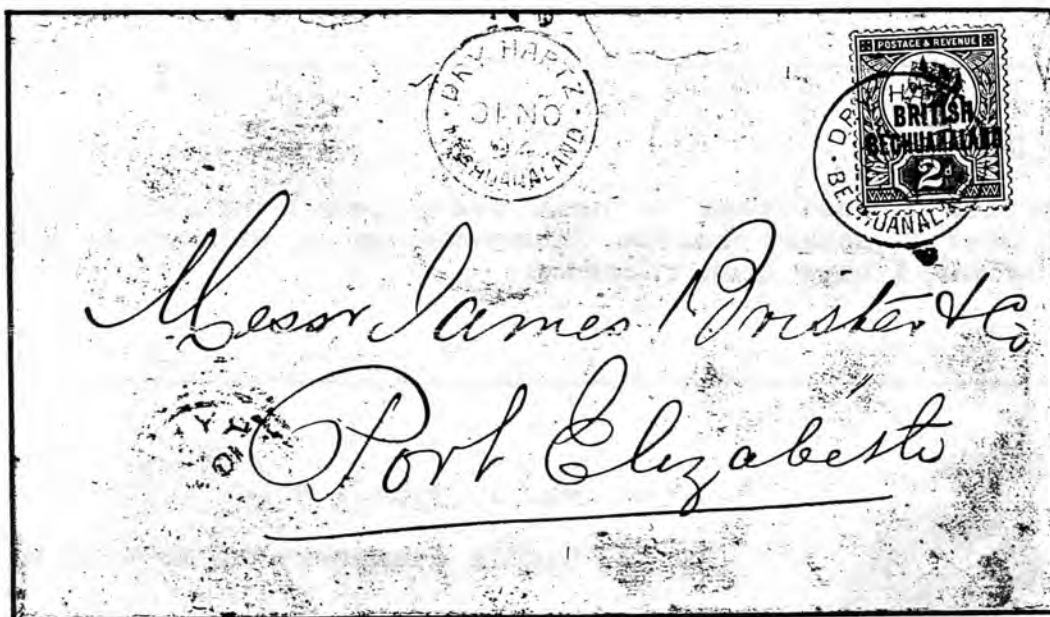 DRY HARTZ
NO 10
BECHUANALAND
POSTAGE & REVENUE
BRITISH
BECHUANALAND
2d
DRY H
BECHUANAL
Messr James Brister & Co
Port Elizabeth